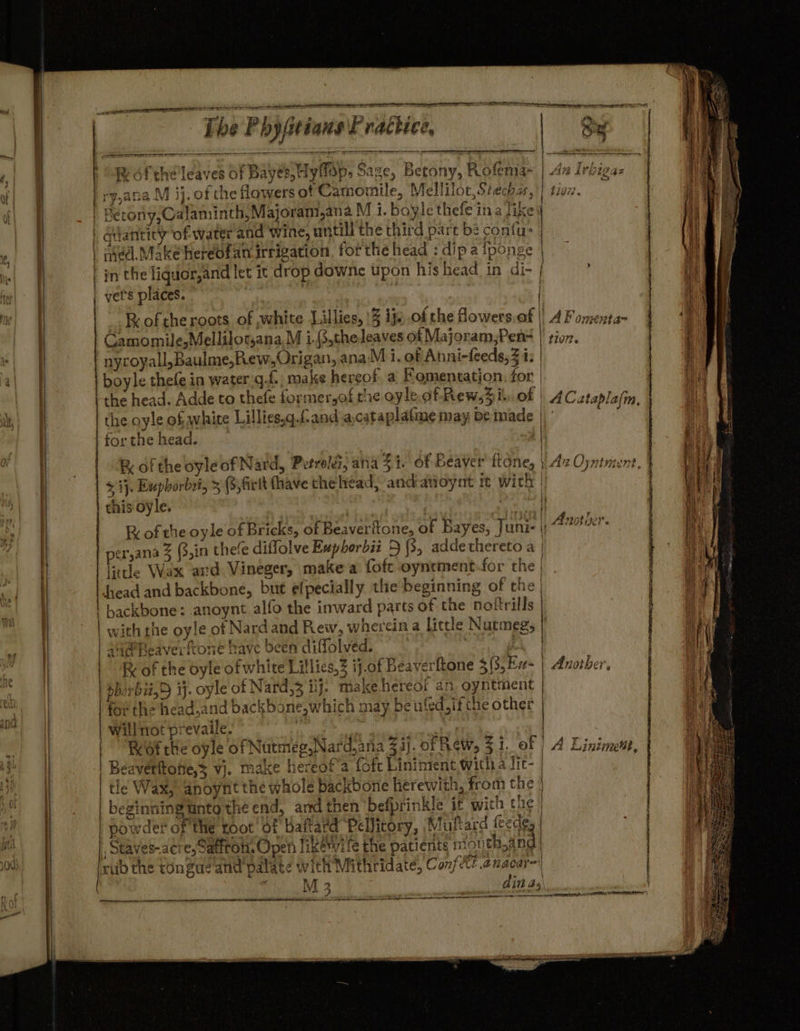 The Phyſitians Practice, 85
℞ of the leaves of Bayes, Hyſſop, Sage, Betony, Roſema-
ry, ana M ij. of the flowers of Camomile, Mellilot, Stechas,
Betony, Calaminth, Majoram, ana M i. boyle theſe in a like
quantity of water and wine, untill the third part be conſu-
med. Make hereof an irrigation, for the head : dip a ſponge
in the liquor, and let it drop downe upon his head in di-
vers places.
An Irriga-
tion.
℞ of the roots of white Lillies, ℥ ij. of the flowers of
Camomile, Mellilot, ana M i.ß, the leaves of Majoram, Pen-
nyroyall, Baulme, Rew, Origan, ana M i. of Anni-ſeeds, ℥ i.
boyle theſe in water q.ſ. make hereof a Fomentation, for
the head. Adde to theſe former, of the oyle of Rew, ℥ ii. of
the oyle of white Lillies, q.ſ. and a cataplaſme may be made
for the head.
A Fomenta-
tion.
A Cataplaſm.
℞ of the oyle of Nard, Petrolei, ana ℥ i. of Beaver ſtone,
ʒ ij. Euphorbii, ʒ ß, firſt ſhave the head, and anoynt it with
this oyle.
An Oyntment.
℞ of the oyle of Bricks, of Beaverſtone, of Bayes, Juni-
per, ana ℥ ß, in theſe diſſolve Euphorbii ℈ ß, adde thereto a
little Wax and Vineger, make a ſoft oyntment for the
head and backbone, but eſpecially the beginning of the
backbone: anoynt alſo the inward parts of the noſtrills
with the oyle of Nard and Rew, wherein a little Nutmeg,
and Beaverſtone have been diſſolved.
Another.
℞ of the oyle of white Lillies, ℥ ij. of Beaverſtone ʒ ß, Eu-
phorbii, ℈ ij. oyle of Nard, ʒ iij. make hereof an oyntment
for the head, and backbone, which may be uſed, if the other
will not prevaile.
Another.
℞ of the oyle of Nutmeg, Nard, ana ℥ ij. of Rew, ℥ i. of
Beaverſtone, ʒ vj. make hereof a ſoft Liniment with a lit-
tle Wax, anoynt the whole backbone herewith, from the
beginning unto the end, and then beſprinkle it with the
powder of the root of baſtard Pellitory, Muſtard ſeedes,
Staves-acre, Saffron. Open likewiſe the patients mouth, and
rub the tongue and palate with Mithridate, Confect. anacar-
A Liniment,
M 3 dinas,